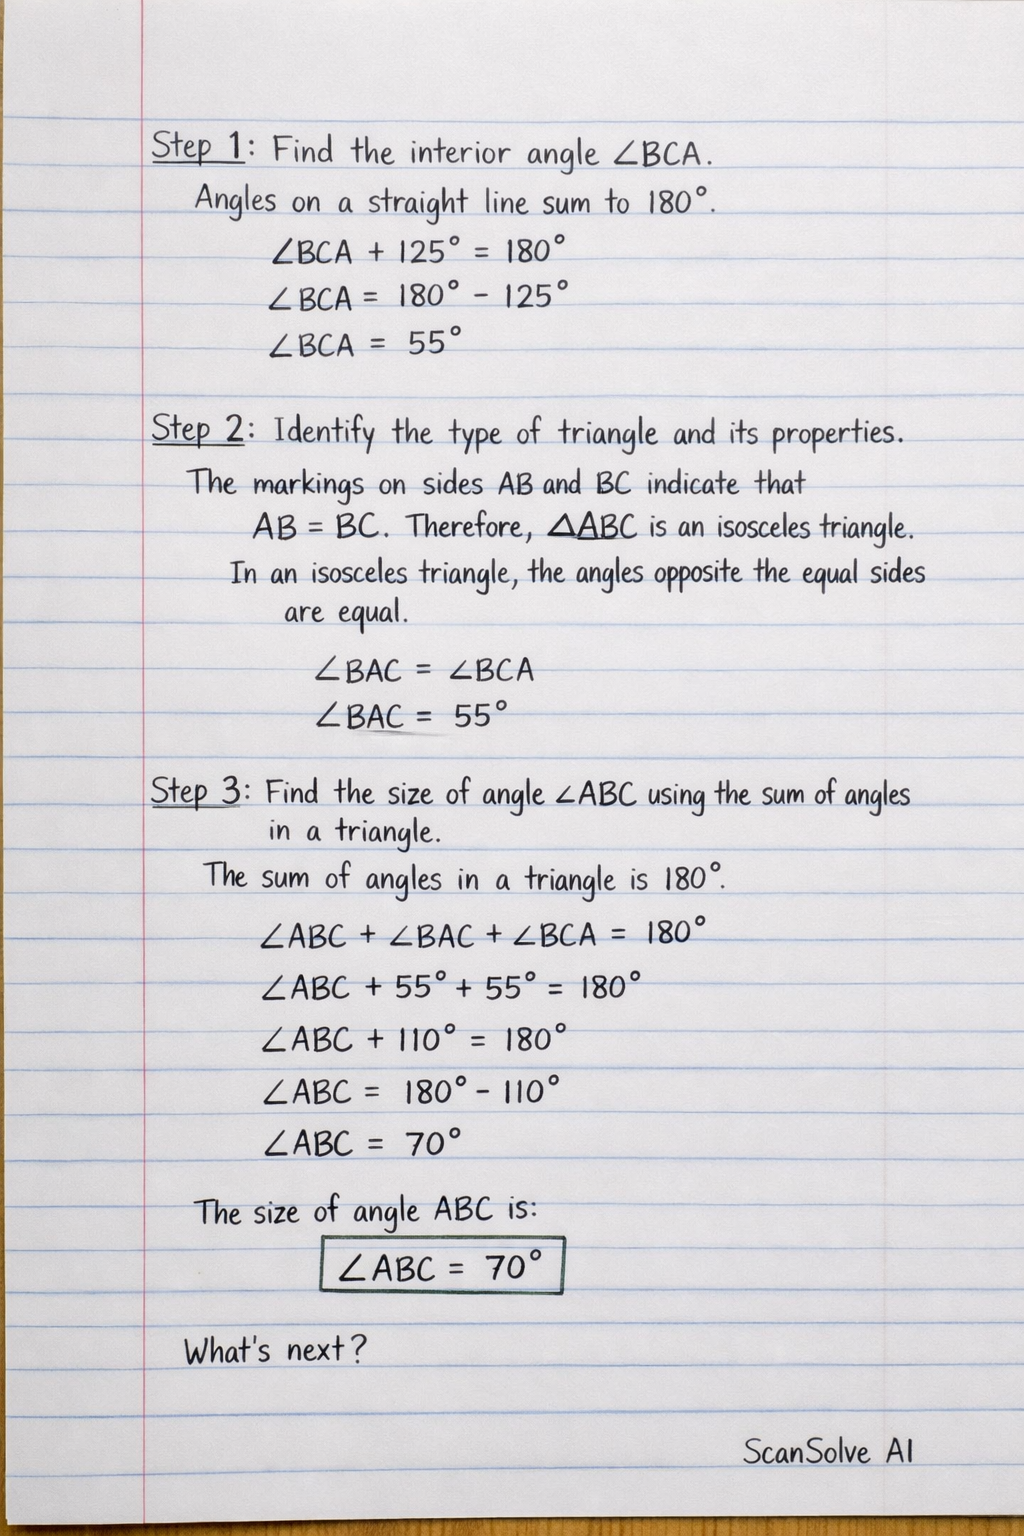 Step 1: Find the interior angle ∠BCA.
Angles on a straight line sum to 180°.
∠BCA + 125° = 180°
∠BCA = 180° - 125°
∠BCA = 55°
Step 2: Identify the type of triangle and its properties.
The markings on sides AB and BC indicate that
AB = BC. Therefore, △ABC is an isosceles triangle.
In an isosceles triangle, the angles opposite the equal sides
are equal.
∠BAC = ∠BCA
∠BAC = 55°
Step 3: Find the size of angle ∠ABC using the sum of angles
in a triangle.
The sum of angles in a triangle is 180°.
∠ABC + ∠BAC + ∠BCA = 180°
∠ABC + 55° + 55° = 180°
∠ABC + 110° = 180°
∠ABC = 180° - 110°
∠ABC = 70°
The size of angle ABC is:
∠ABC = 70°
What's next?
ScanSolve AI